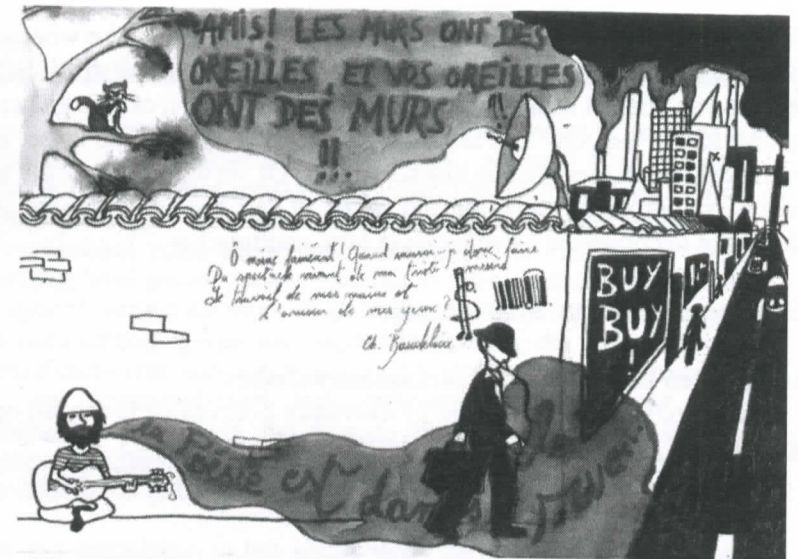 AMIS! LES MURS ONT DES
OREILLES, ET VOS OREILLES
ONT DES MURS
!!!
Ô moine fainéant! Quand saurai-je donc faire
Du spectacle vivant de ma triste misère
Le travail de mes mains et
l'amour de mes yeux?
Ch. Baudelaire
$
BUY
BUY
!
La Poésie est dans la